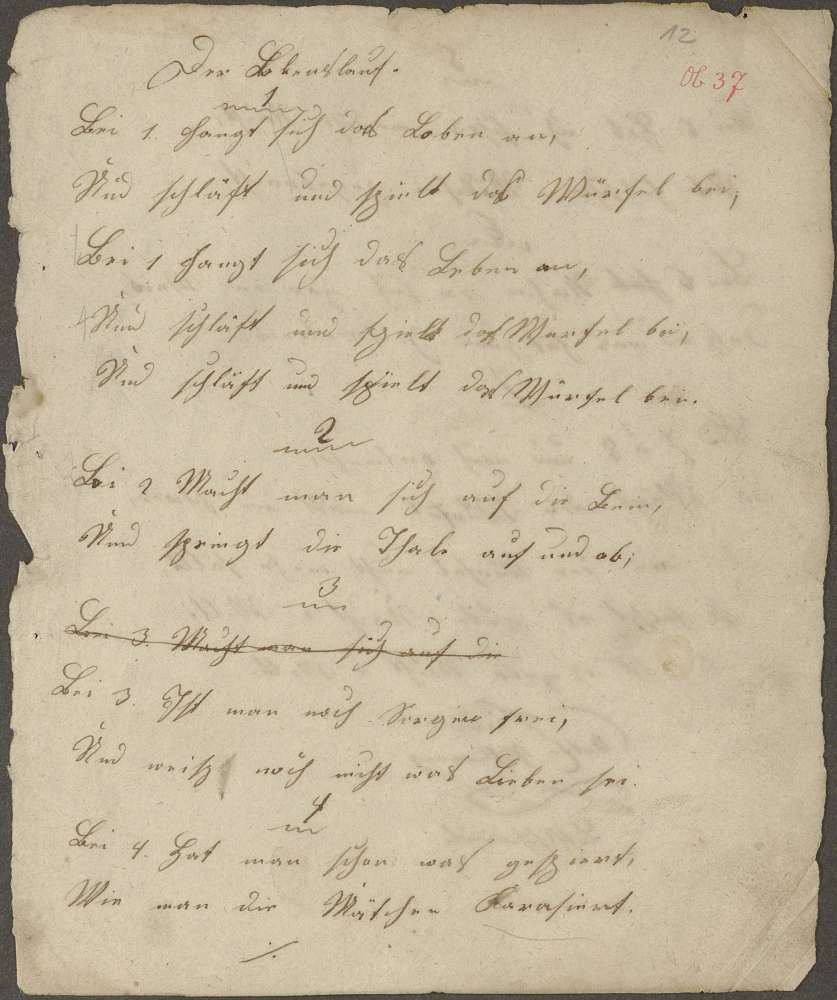 12
Ob 37
Der Lebenslauf.
1
Bei 1. fangt sich das Leben an,
Und schläft und spielt das Würfel bei;
Bei 1 fangt sich das Leben an,
Und schläft und spielt das Würfel bei,
Und schläft und spielt das Würfel bei.
2
Bei 2 Macht man sich auf die Bein,
Und springt die Thale auf und ab;
3
Bei 3. Macht man sich auf die
Bei 3. Ist man noch Sorgen frei,
Und weiß noch nicht was Lieben sei.
4
Bei 4. Hat man schon was gespiert,
Wie man die Mätchen Karasiert.
./.